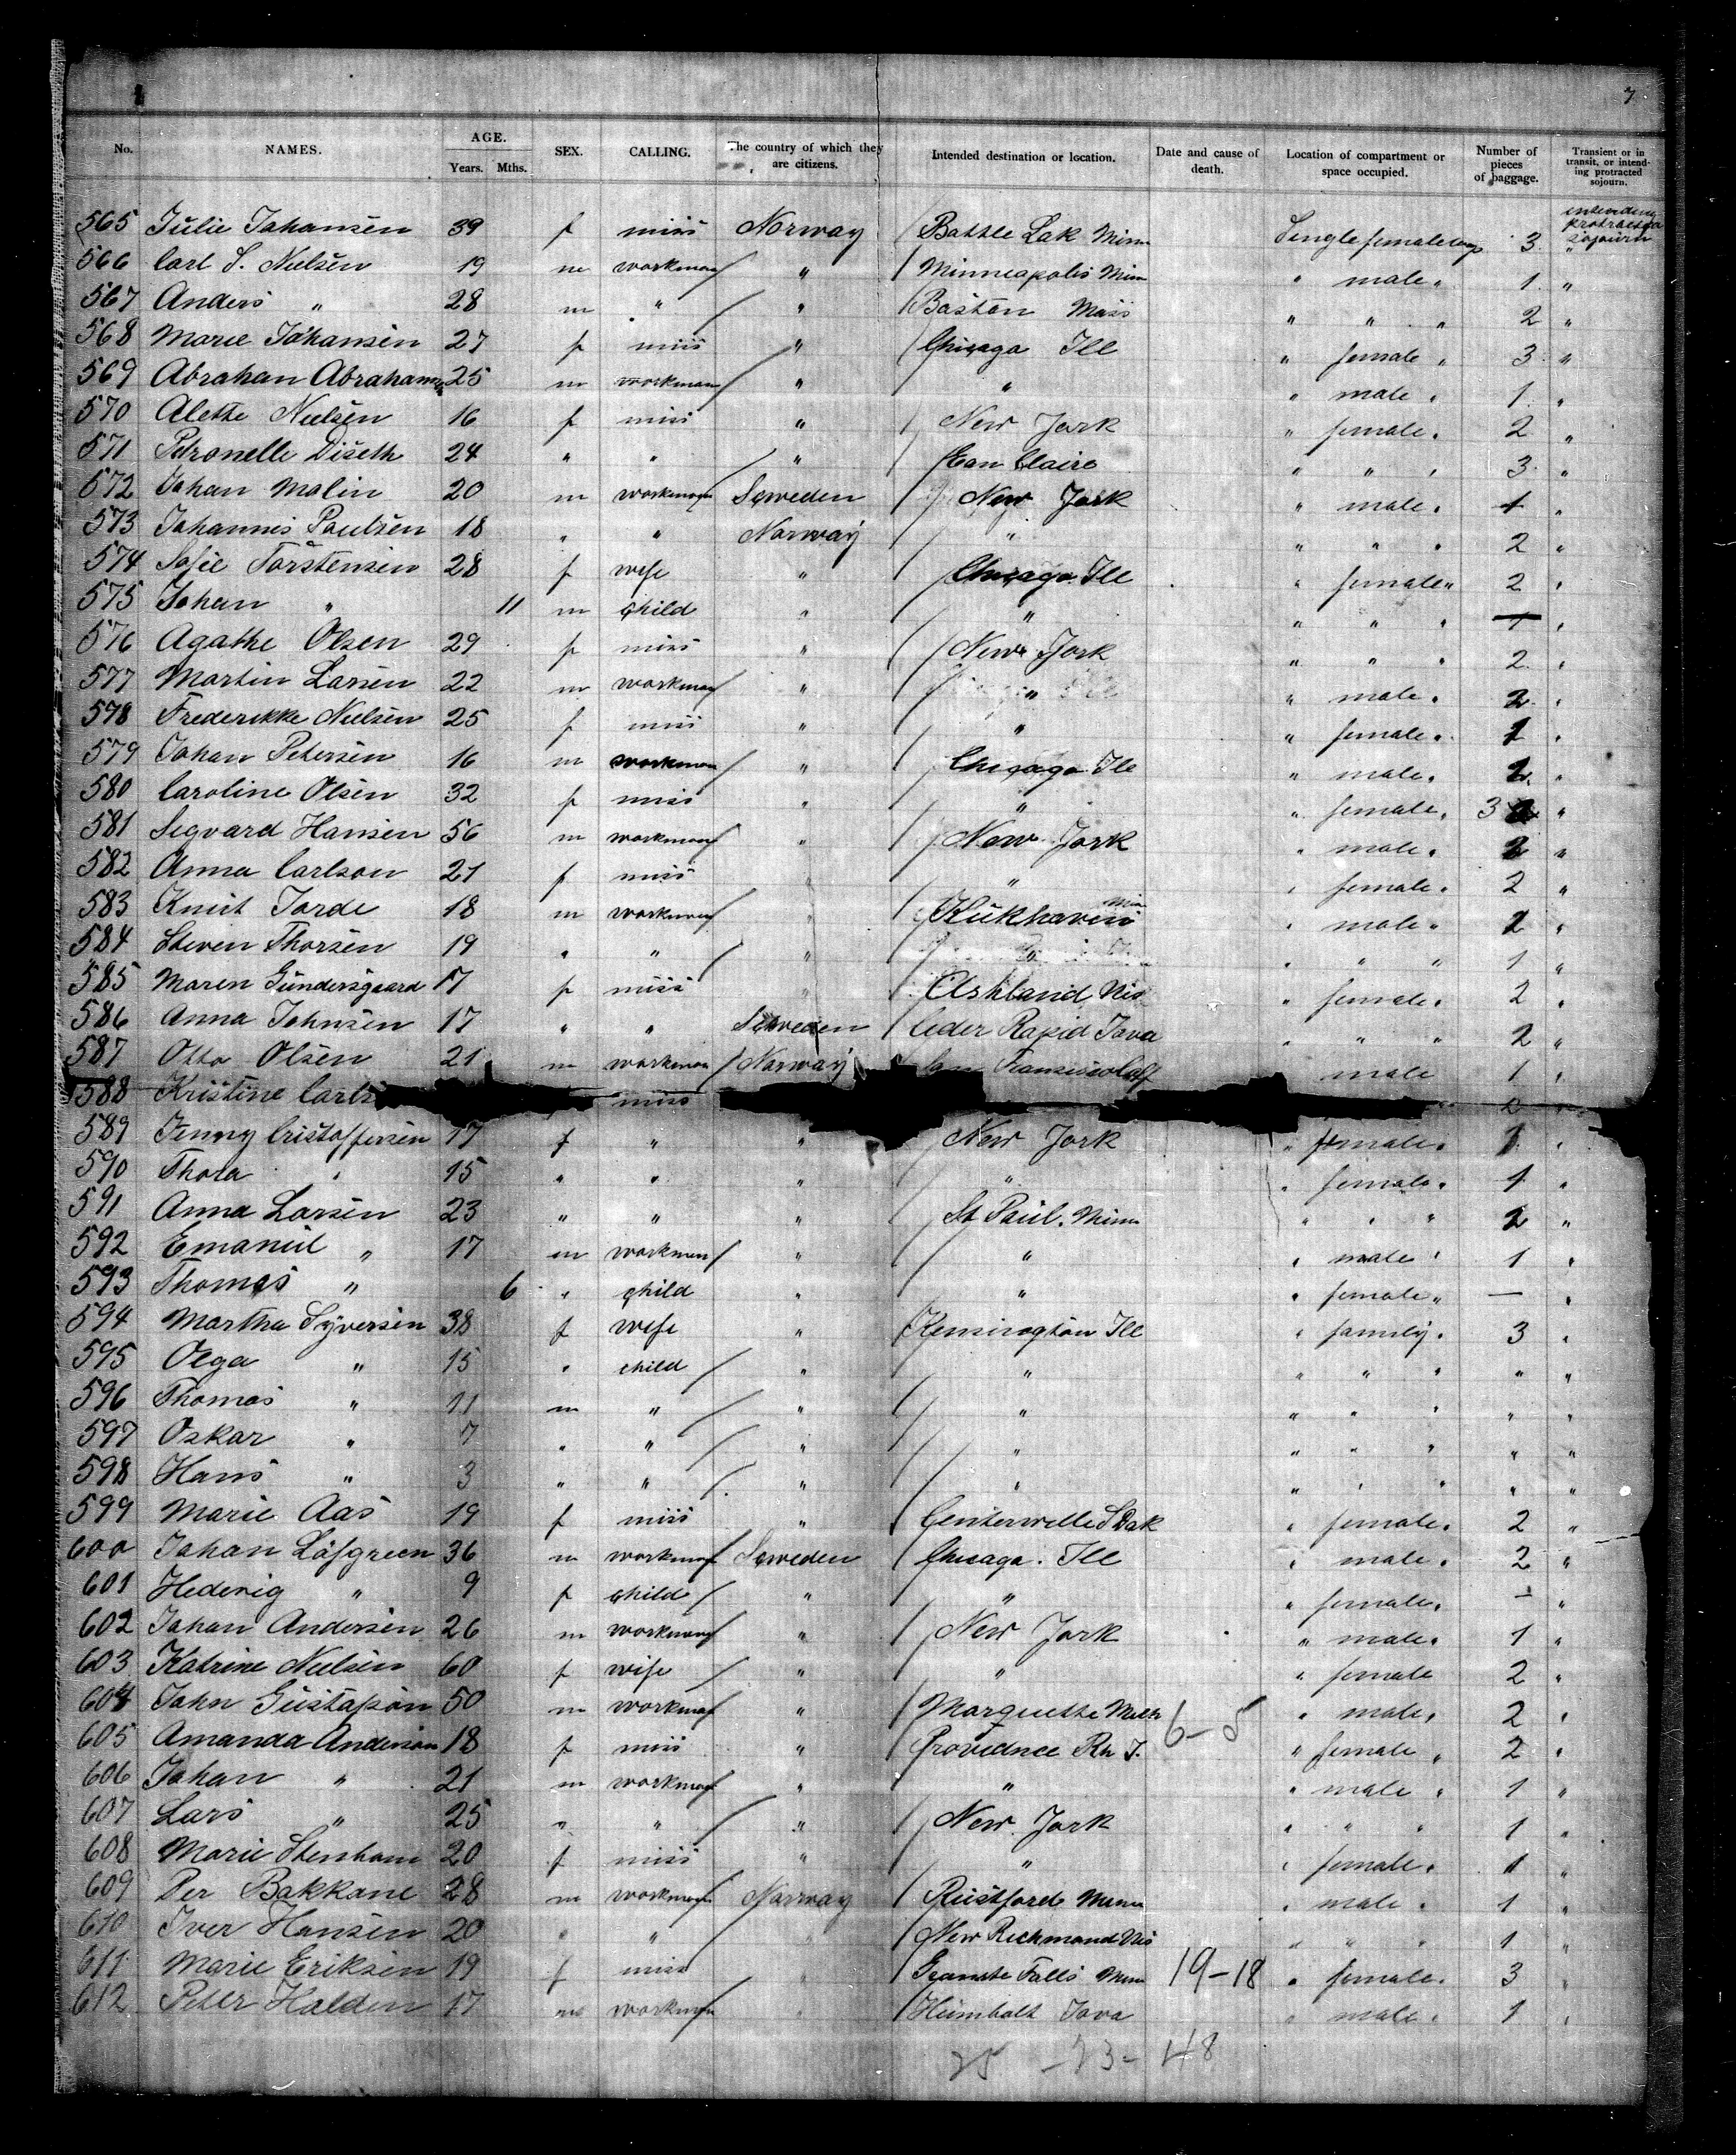 7
No. NAMES. AGE. Years. Mths. SEX. CALLING. The country of which they are citizens. Intended destination or location. Date and cause of death. Location of compartment or space occupied. Number of pieces of baggage. Transient or in transit, or intending protracted sojourn.
565 Julie Johansen 39 f miss Norway Battle Lak Minn Single female 3 intending protracted sojourn
566 Carl S. Nielsen 19 m workman " Minneapolis Minn " male " 1 "
567 Anders " 28 m " " Boston Mass " " " 2 "
568 Marie Johansen 27 f miss " Chicago Ill " female " 3 "
569 Abrahan 25 m workman " " " male " 1 "
570 Alette Nielsen 16 f miss " New York " female " 2 "
571 Petronelle Diseth 24 " " " Eau Claire " " " 3 "
572 Johan Malin 20 m workman Sweden New York " male " 1 "
573 Johannes Paulsen 18 " " Norway " " " " 2 "
574 Sofie Torstensen 28 f wife " Chicago Ill " female " 2 "
575 Johan " 11 m child " " " " "
576 Agathe Olsen 29 f miss " New York " " " 2 "
577 Martin Larsen 22 m workman " " " male " 2 "
578 Frederikke Nielsen 25 f miss " " " female " 1 "
579 Johan Petersen 16 m workman " Chicago Ill " male " "
580 Caroline Olsen 32 f miss " " " female " 3 "
581 Sigvard Hansen 56 m workman " New York " male " 2 "
582 Anna Carlson 21 f miss " " " female " 2 "
583 Knut Jorde 18 m workman " " male " 2 "
584 Steven Thorsen 19 " " " " " " " 1 "
585 Maren Gundersgaard 17 f miss " Ashland Wis " female " 2 "
586 Anna Johnsen 17 " " Sweden Ceder Rapid Iova " " " 2 "
587 Otto Olsen 21 m workman Norway San Fransisco Calf male 1 "
588 Kristine miss
589 Jenny Cristoffersen 17 f " " New York " female " 1 "
590 Thora " 15 " " " " " female " 1 "
591 Anna Larsen 23 " " " St Paul. Minn " " " 2 "
592 Emanuel " 17 m workman " " " male " 1 "
593 Thomas " 6 " child " " " female " — "
594 Martha Syversen 38 f wife " Kensington Ill " family " 3 "
595 Olga " 15 " child " " " " " " "
596 Thomas " 11 m " " " " " " " "
597 Oskar " 7 " " " " " " " " "
598 Hans " 3 " " " " " " " " "
599 Marie Aas 19 f miss " Centerville S Dak " female " 2 "
600 Johan Löfgreen 36 m workman Sweden Chicago. Ill " male " 2 "
601 Hedevig " 9 f child " " " female " — "
602 Johan Andersen 26 m workman " New York " male " 1 "
603 Katrine Nielsen 60 f wife " " " female 2 "
604 John Gustafson 50 m workman " Marquette Mich 6-5 " male " 2 "
605 Amanda Anderson 18 f miss " Providnce Rh I. " female " 2 "
606 Johan " 21 m workman " " " male " 1 "
607 Lars " 25 " " " New York " " " 1 "
608 Marie Stenham 20 f miss " " " female " 1 "
609 Per Bakkane 28 m workman Norway Rustford Minn " male " 1 "
610 Iver Hansen 20 " " " New Richmond Wis " " " 1 "
611 Marie Eriksen 19 f miss " Granite Falls Minn 19-18 " female " 3 "
612 Peter Halden 17 m workman " Humbolt Iova " male " 1 "
25 -23- 48